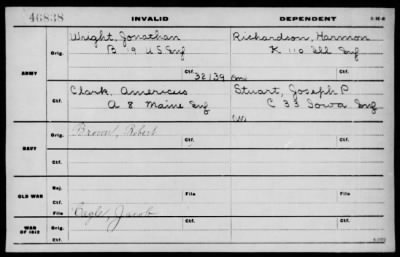 46838 INVALID DEPENDENT
ARMY
Orig. Wright, Jonathan Richardson, Harmon
B 19 U.S. Inf K 110 Ill Inf
Ctf. 32139
Ctf. Clark, Americus Stuart, Joseph P
A 8 Maine Inf C 33 Iowa Inf
NAVY
Orig. Brown, Robert Orig.
Ctf. Ctf.
OLD WAR
Rej.
Ctf. File File
WAR OF 1812
File Eagle, Jacob
Orig. Ctf.
Ctf.